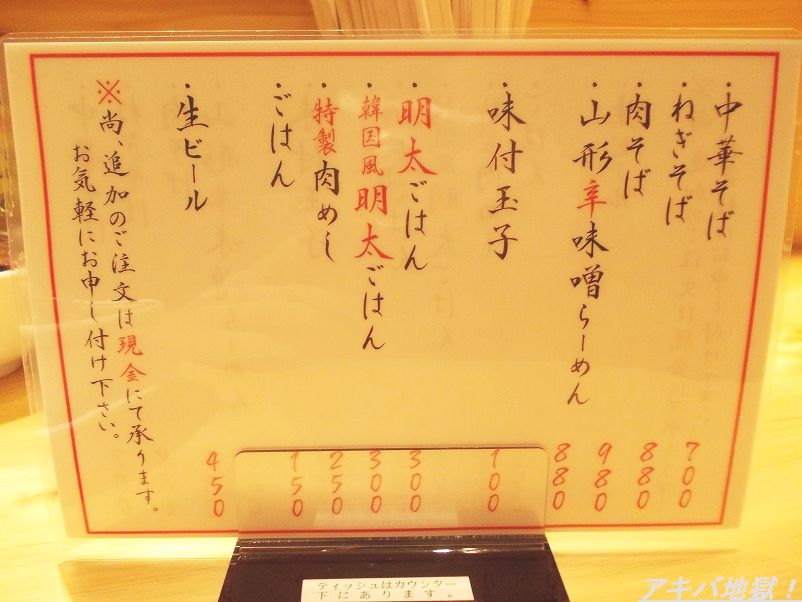 ・中華そば 700
・ねぎそば 880
・肉そば 980
・山形辛味噌らーめん 880
・味付玉子 100
・明太ごはん 300
・韓国風明太ごはん 300
・特製肉めし 250
・ごはん 150
・生ビール 450
※尚、追加のご注文は現金にて承ります。
お気軽にお申し付け下さい。
ティッシュはカウンター
下にあります。
アキバ地獄!